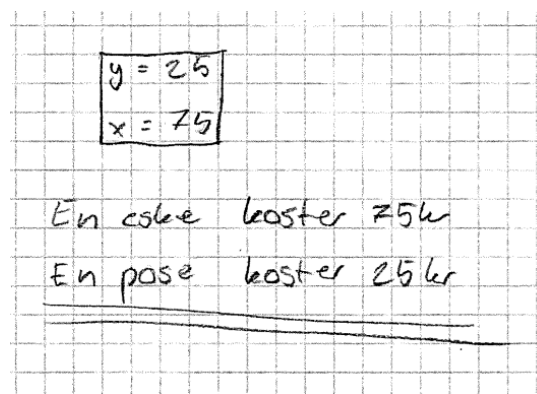 y = 25
x = 75
En eske koster 75kr
En pose koster 25 kr